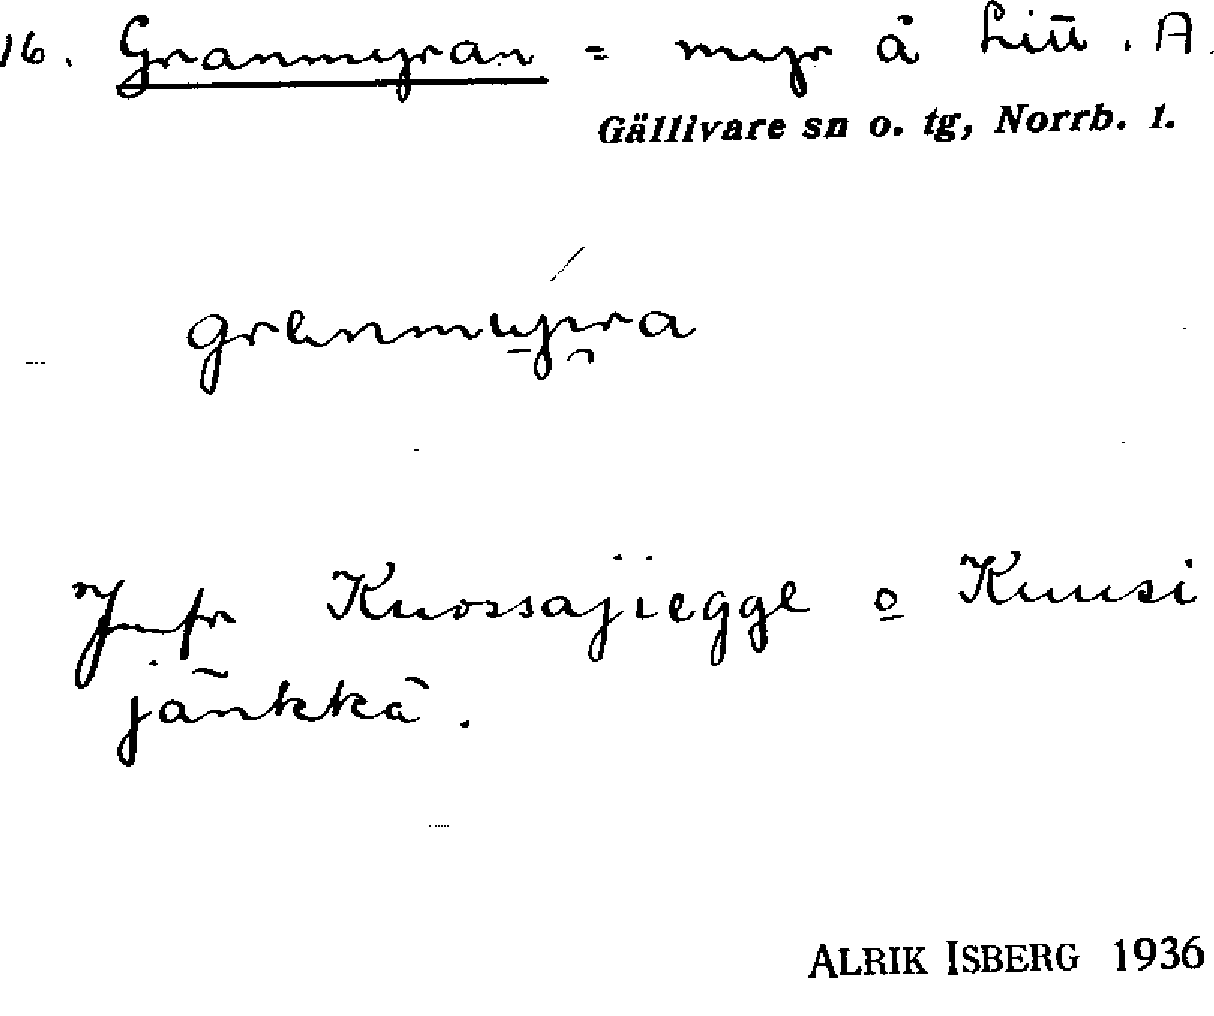 16. Granmyran = myr å Litt. A.
Gällivare sn o. tg, Norrb. 1.
Jmfr Kuossajiegge o Kuusi
jänkkä.
ALRIK ISBERG 1936